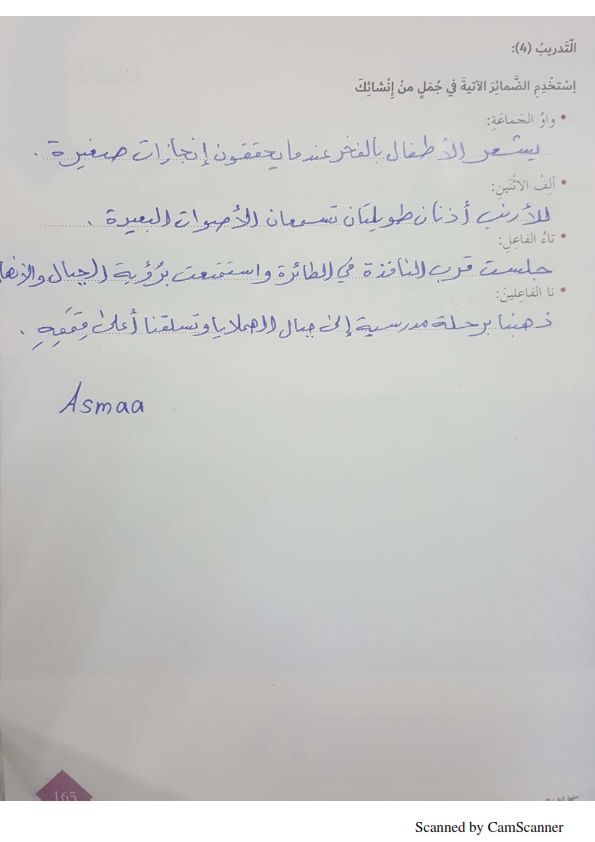 التَّدريبُ (4):
اِسْتَخْدِمِ الضَّمائِرَ الآتيةَ في جُمَلٍ منْ إنْشائِكَ
• واوُ الجَماعَةِ:
يشعر الأطفال بالفخر عندما يحققون إنجازات صغيرة .
• ألِفُ الاثْنَينِ:
للأرنب أذنان طويلتان تسمعان الأصوات البعيدة .
• تاءُ الفاعِلِ:
جلست قرب النافذة في الطائرة واستمتعت برُؤية الجبال والانها
• نا الفاعِلينَ:
ذهبنا برحلة مدرسية إلى جبال الهملايا وتسلقنا أعلى قِمَمِهِ .
Asmaa
165
Scanned by CamScanner